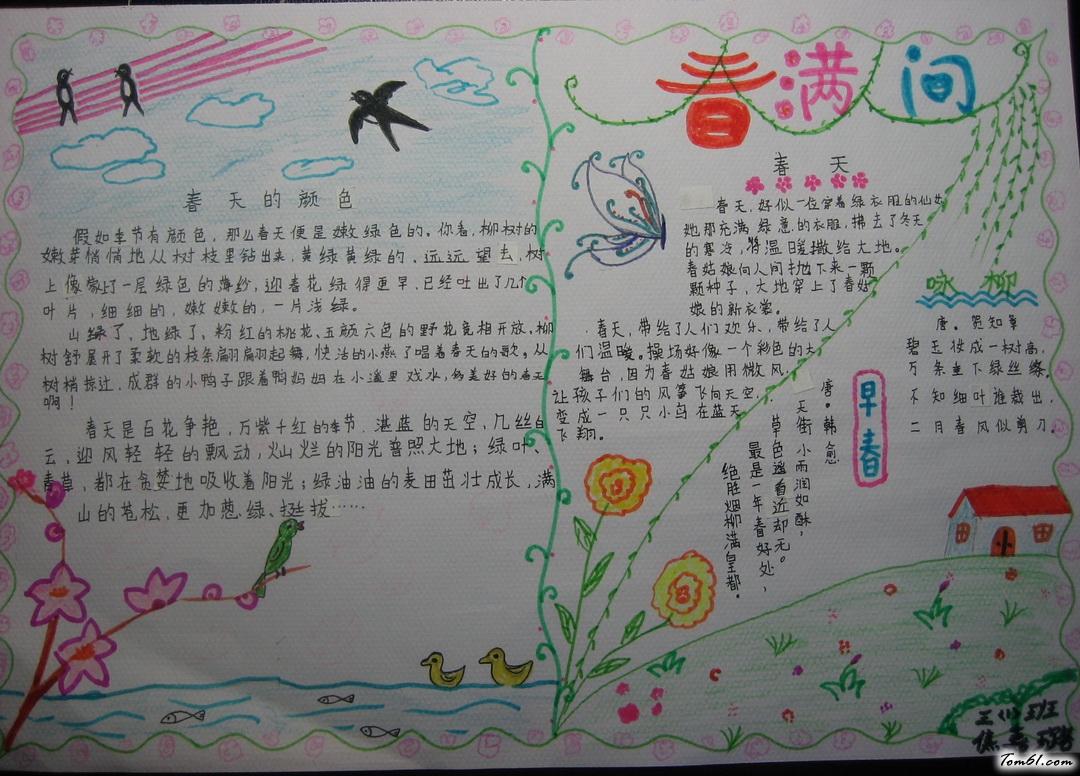 春天的颜色
假如季节有颜色，那么春天便是嫩绿色的。你看，柳树的
嫩芽悄悄地从树枝里钻出来，黄绿黄绿的，远远望去，树
上像蒙了一层绿色的薄纱，迎春花绿得更早，已经吐出了几个
叶片，细细的，嫩嫩的，一片浅绿。
山绿了，地绿了，粉红的桃花、五颜六色的野花竞相开放。柳
树舒展开了柔软的枝条翩翩起舞，快活的小燕子唱着春天的歌。从
树梢掠过，成群的小鸭子跟着鸭妈妈在小溪里戏水，多美好的春天
啊！
春天是百花争艳，万紫千红的季节。湛蓝的天空，几丝白
云，迎风轻轻的飘动，灿烂的阳光普照大地；绿叶、
青草，都在贪婪地吸收着阳光；绿油油的麦田茁壮成长，满
山的苍松，更加葱绿、挺拔……
春满间
春天
春天，好似一位穿着绿衣服的仙女
她那充满绿意的衣服，拂去了冬天
的寒冷，将温暖撒给大地。
春姑娘向人间抛下来一颗
颗种子，大地穿上了春姑
娘的新衣裳。
春天，带给了人们欢乐，带给了人
们温暖。操场好像一个彩色的大
舞台，因为春姑娘用微风，
让孩子们的风筝飞向天空，
变成一只只小鸟在蓝天
飞翔。
早春
唐。韩愈
天街小雨润如酥，
草色遥看近却无。
最是一年春好处，
绝胜烟柳满皇都。
咏柳
唐。贺知章
碧玉妆成一树高，
万条垂下绿丝绦。
不知细叶谁裁出，
二月春风似剪刀。
班
Tom61.com